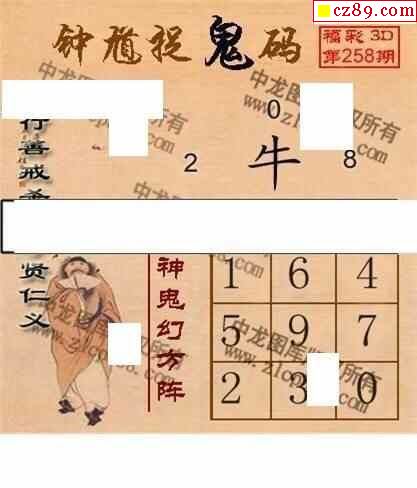 cz89.com
钟馗捉鬼码
福彩3D
第258期
0
2 牛 8
行善戒
贤仁义
神鬼幻方阵
1 6 4
5 9 7
2 3 0
中龙图库版权所有